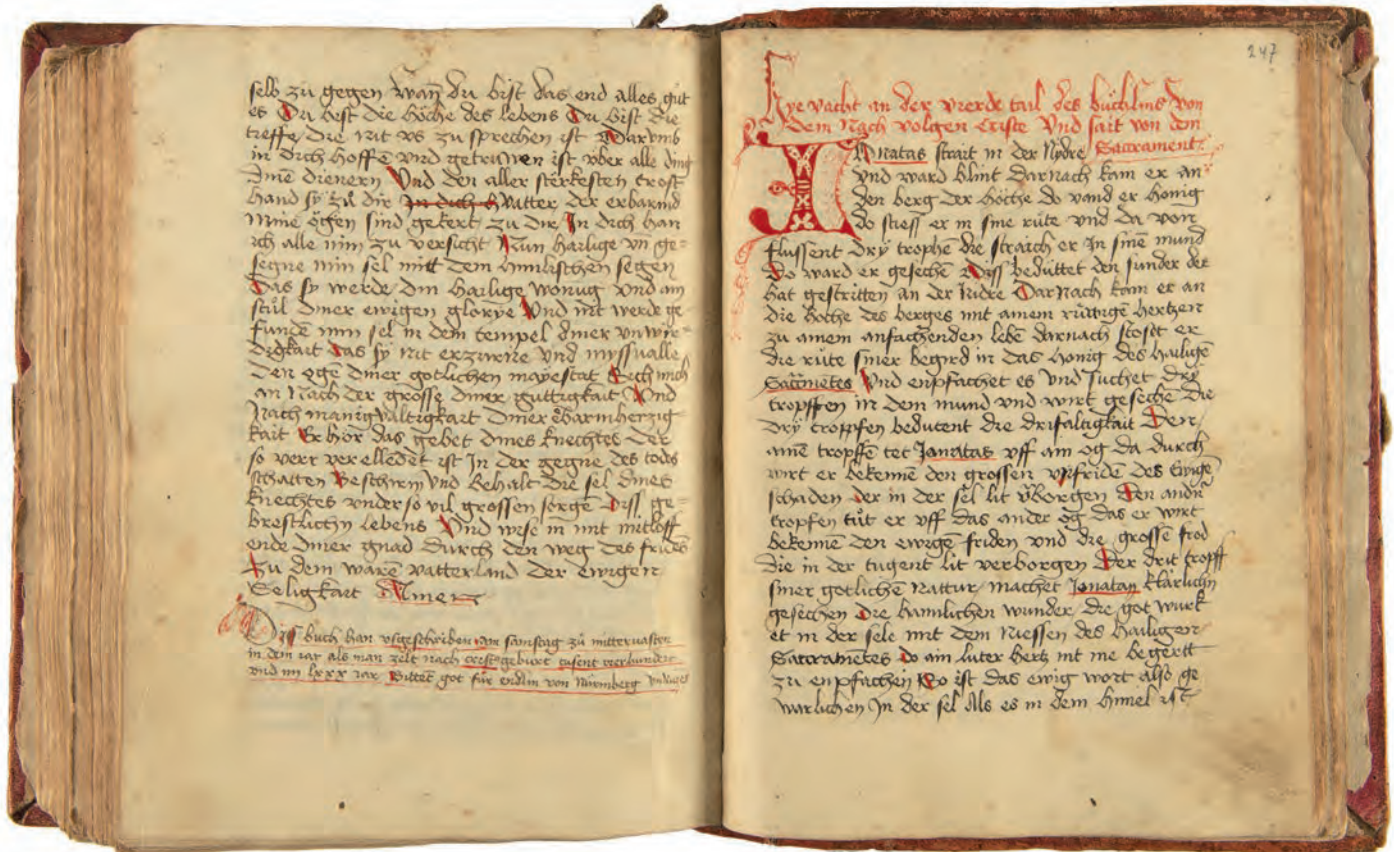 selb zu gegen wañ du bist das end alles gůt
es Du bist die höche des lebens Du bist die
treffe die nit vs zu sprechen ist Darvmb
in dich hoffe vnd getruwen ist vber alle ding
dinē dienern Vnd den aller sterkesten trost
hand sy zů dir In dich h Vatter der erbarmd
mine ögen sind gekert zu dir In dich han
ich alle min zu versicht Nun hailige vn̄ ge=
segne min sel mitt dem himlischen segen
Das sy werde din hailige wonūg vnd ain
stůl diner ewigen glorye Vnd nit werde ge=
funde min sel in dem tempel diner vnwir=
digkait das sy nit erzurne vnd myssualle
den ogē diner gotlichen mayestat Sech mich
an Nach der grösse diner guttigkait Vnd
Nach manigualtigkait diner erbarmherzig
kait Erhör das gebet dines knechtes der
so verr verellēdet ist In der gegne des todes
schatten Beschirm vnd behalt die sel dines
knechtes vnder so vil grossen sorgē Diss ge=
brestlichn lebens Vnd wise in mit mitloff
ende diner gnad durch den weg des frides
Zu dem warē vatterland der ewigen
Seligkait Amen
Diss buch han vsgeschriben am samstag zů mitternasten
in dem iar als man zelt nach cristgeburt tusent vierhundert
vnd im lxxx iar Bittet got für endlin von Nürmberg
247
Hye vacht an der vierde tail des büchlins von
dem Nach volgen criste Vnd sait von dem
Sacrament
IOnatas strait in der Nydre
Vnd ward blint Darnach kam er an
den berg der höche do vand er honig
do stiess er in sine růte vnd da von
flussent dry trophē die straich er In sinē mund
Do ward er gesechē Dyss bedüttet den sunder der
hat gestritten an der nidre Dar Nach kom er an
die höche des berges mit ainem rüwigē hertzen
zu ainem anfachenden lebē darnach stosst er
die růte siner begird in das honig des hailigē
Sacrmētes Vnd enpfachet es vnd suchet dry
tropffen in dem mund vnd wirt gesechē Die
dry tropfen bedutent die drifaltigkait Den
ainē tropffē tet Jonatas vff ain og da durch
wirt er bekennē den grossen vnfriden des ewigē
schaden der in der sel lit v̄borgen Den andrn
tropfen tůt er vff das ander og das er wirt
bekennē den ewigē friden vnd die grossē frod
die in der tugent lit verborgen Der drit tropff
siner gotlichē Nattur machet Jonatan klarlichn
gesechen die haimlichen wunder die got wurk
et in der sele mit dem Niessen des hailigen
Sacramētes do ain luter hertz nit me begertt
zu enpfachen So ist das ewig wort also ge
warlichen In der sel Als es in dem himel ist